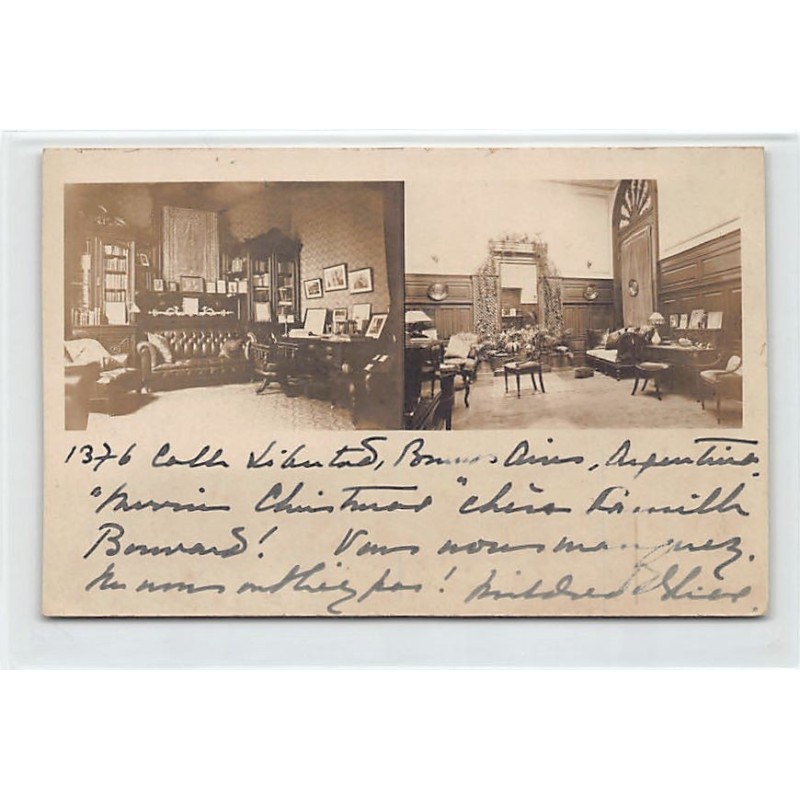 1376 Calle Libertad, Buenos Aires, Argentina.
"Merrie Christmas" chère famille
Bonnard! Vous nous manquez.
Ne nous oubliez pas! Mildred